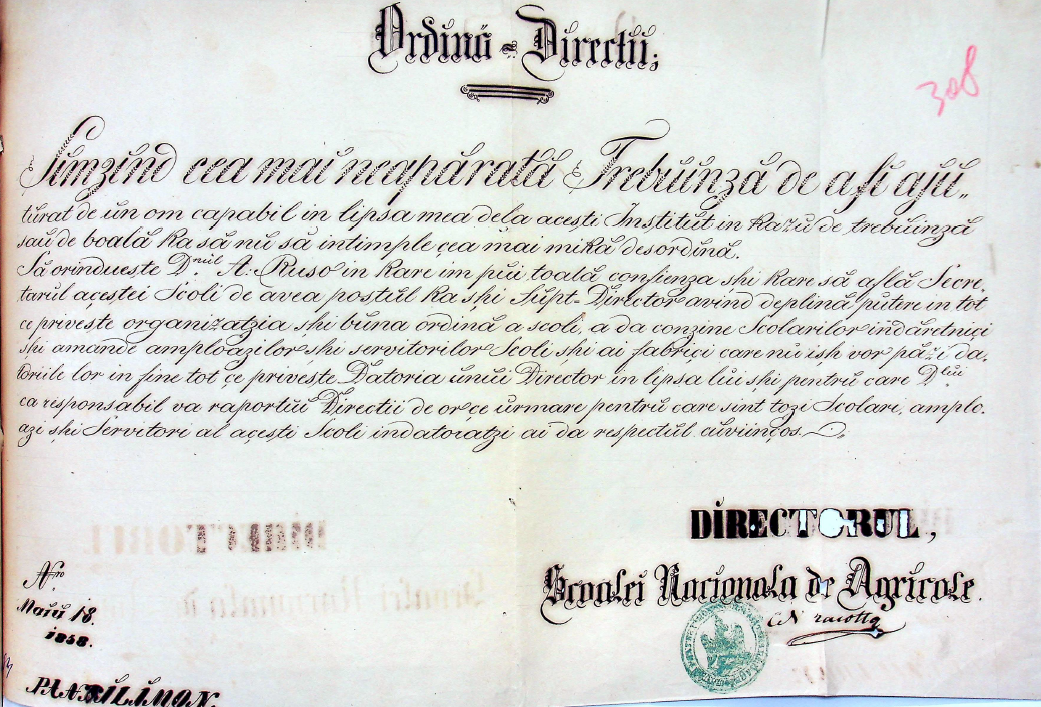 Ordină - Directii;
308
Simzind cea mai neapărată Trebuinză de a fi aju„
turat de un om capabil in lipsa mea dela acești Institut in kazu de trebuinză
sau de boală ka să nu să intimple cea mai mikă desordină.
Să orinduește D.nul A: Ruso in kare im pui toată confienza shi kare să află Secre,
tarul acestei Scoli de avea postul ka shi Supt-Director avind deplină putere in tot
ce priveste organizatzia shi buna ordină a scoli, a da conzine Scolarilor indăretnici
shi amande amploazilor shi servitorilor Scoli shi ai fabrici care nu ish vor păzi da,
toriile lor in fine tot ce priveste Datoria unui Director in lipsa lui shi pentru care D.lui
ca responsabil va raportui Directii de or ce urmare pentru care sint tozi Scolari, amplo,
azi shi Servitori al acești Scoli indatoiatzi ai da respectul cuviincios.
DIRECTORUL,
Scoalei Nacionala de Agricole.
N.ro
Maiu 18.
1858.
PANTILIMON.